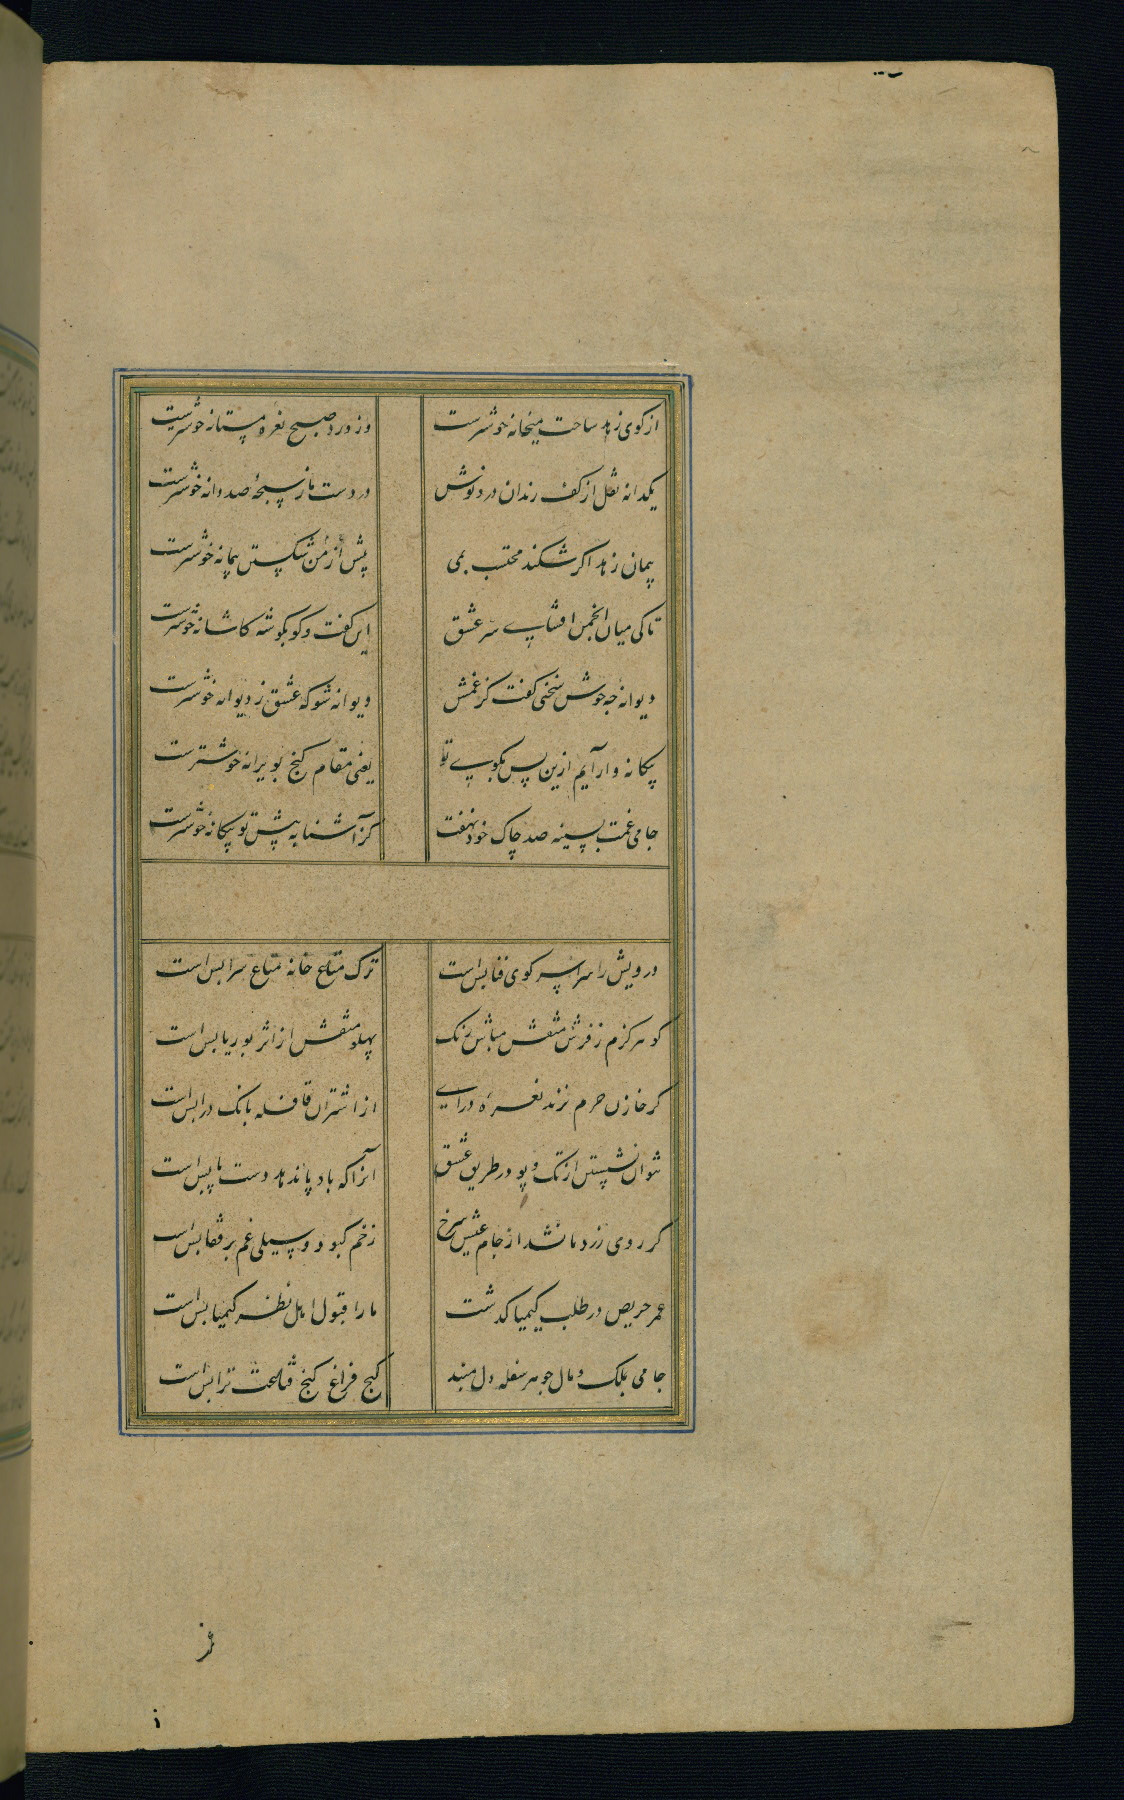 از کوی زهد ساحت میخانه خوشترست
وز ورد صبح نعره مستانه خوشترست
یکدانه نقل از کف رندان دردنوش
در دست ما ز سبحهٔ صد دانه خوشترست
پیمان زهد اگر شکند محتسب بمی
پیش از من شکستن پیمانه خوشترست
تا کی میان انجمن افشای سر عشق
این گفت و گو بگوشه کاشانه خوشترست
دیوانه چه خوش سخنی گفت کز غمش
دیوانه شو که عشق ز دیوانه خوشترست
بیکانه وار آیم ازین پس بکوی تو
یعنی مقام کنج بویرانه خوشترست
جامی غمت بسینه صد چاک خود نهفت
کز آشنا به پیش تو بیکانه خوشترست
درویش را سراسر کوی فنا بس است
ترک متاع خانه متاع سرا بس است
کو هرکزم ز فرش منقش مباش رنک
پهلو منقش از اثر بوریا بس است
کر خازن حرم نزند نعره درای
از اشتران قافله بانک درا بس است
نتوان نشستن از تک و پو در طریق عشق
آنرا که باد پا ندهد دست پا بس است
کر روی زرد ما نشد از جام عیش سرخ
زخم کبود و سیلی غم بر قفا بس است
عمر حریص در طلب کیمیا کذشت
ما را قبول اهل نظر کیمیا بس است
جامی بملک و مال چو هر سفله دل مبند
کنج فراغ کنج قناعت ترا بس است